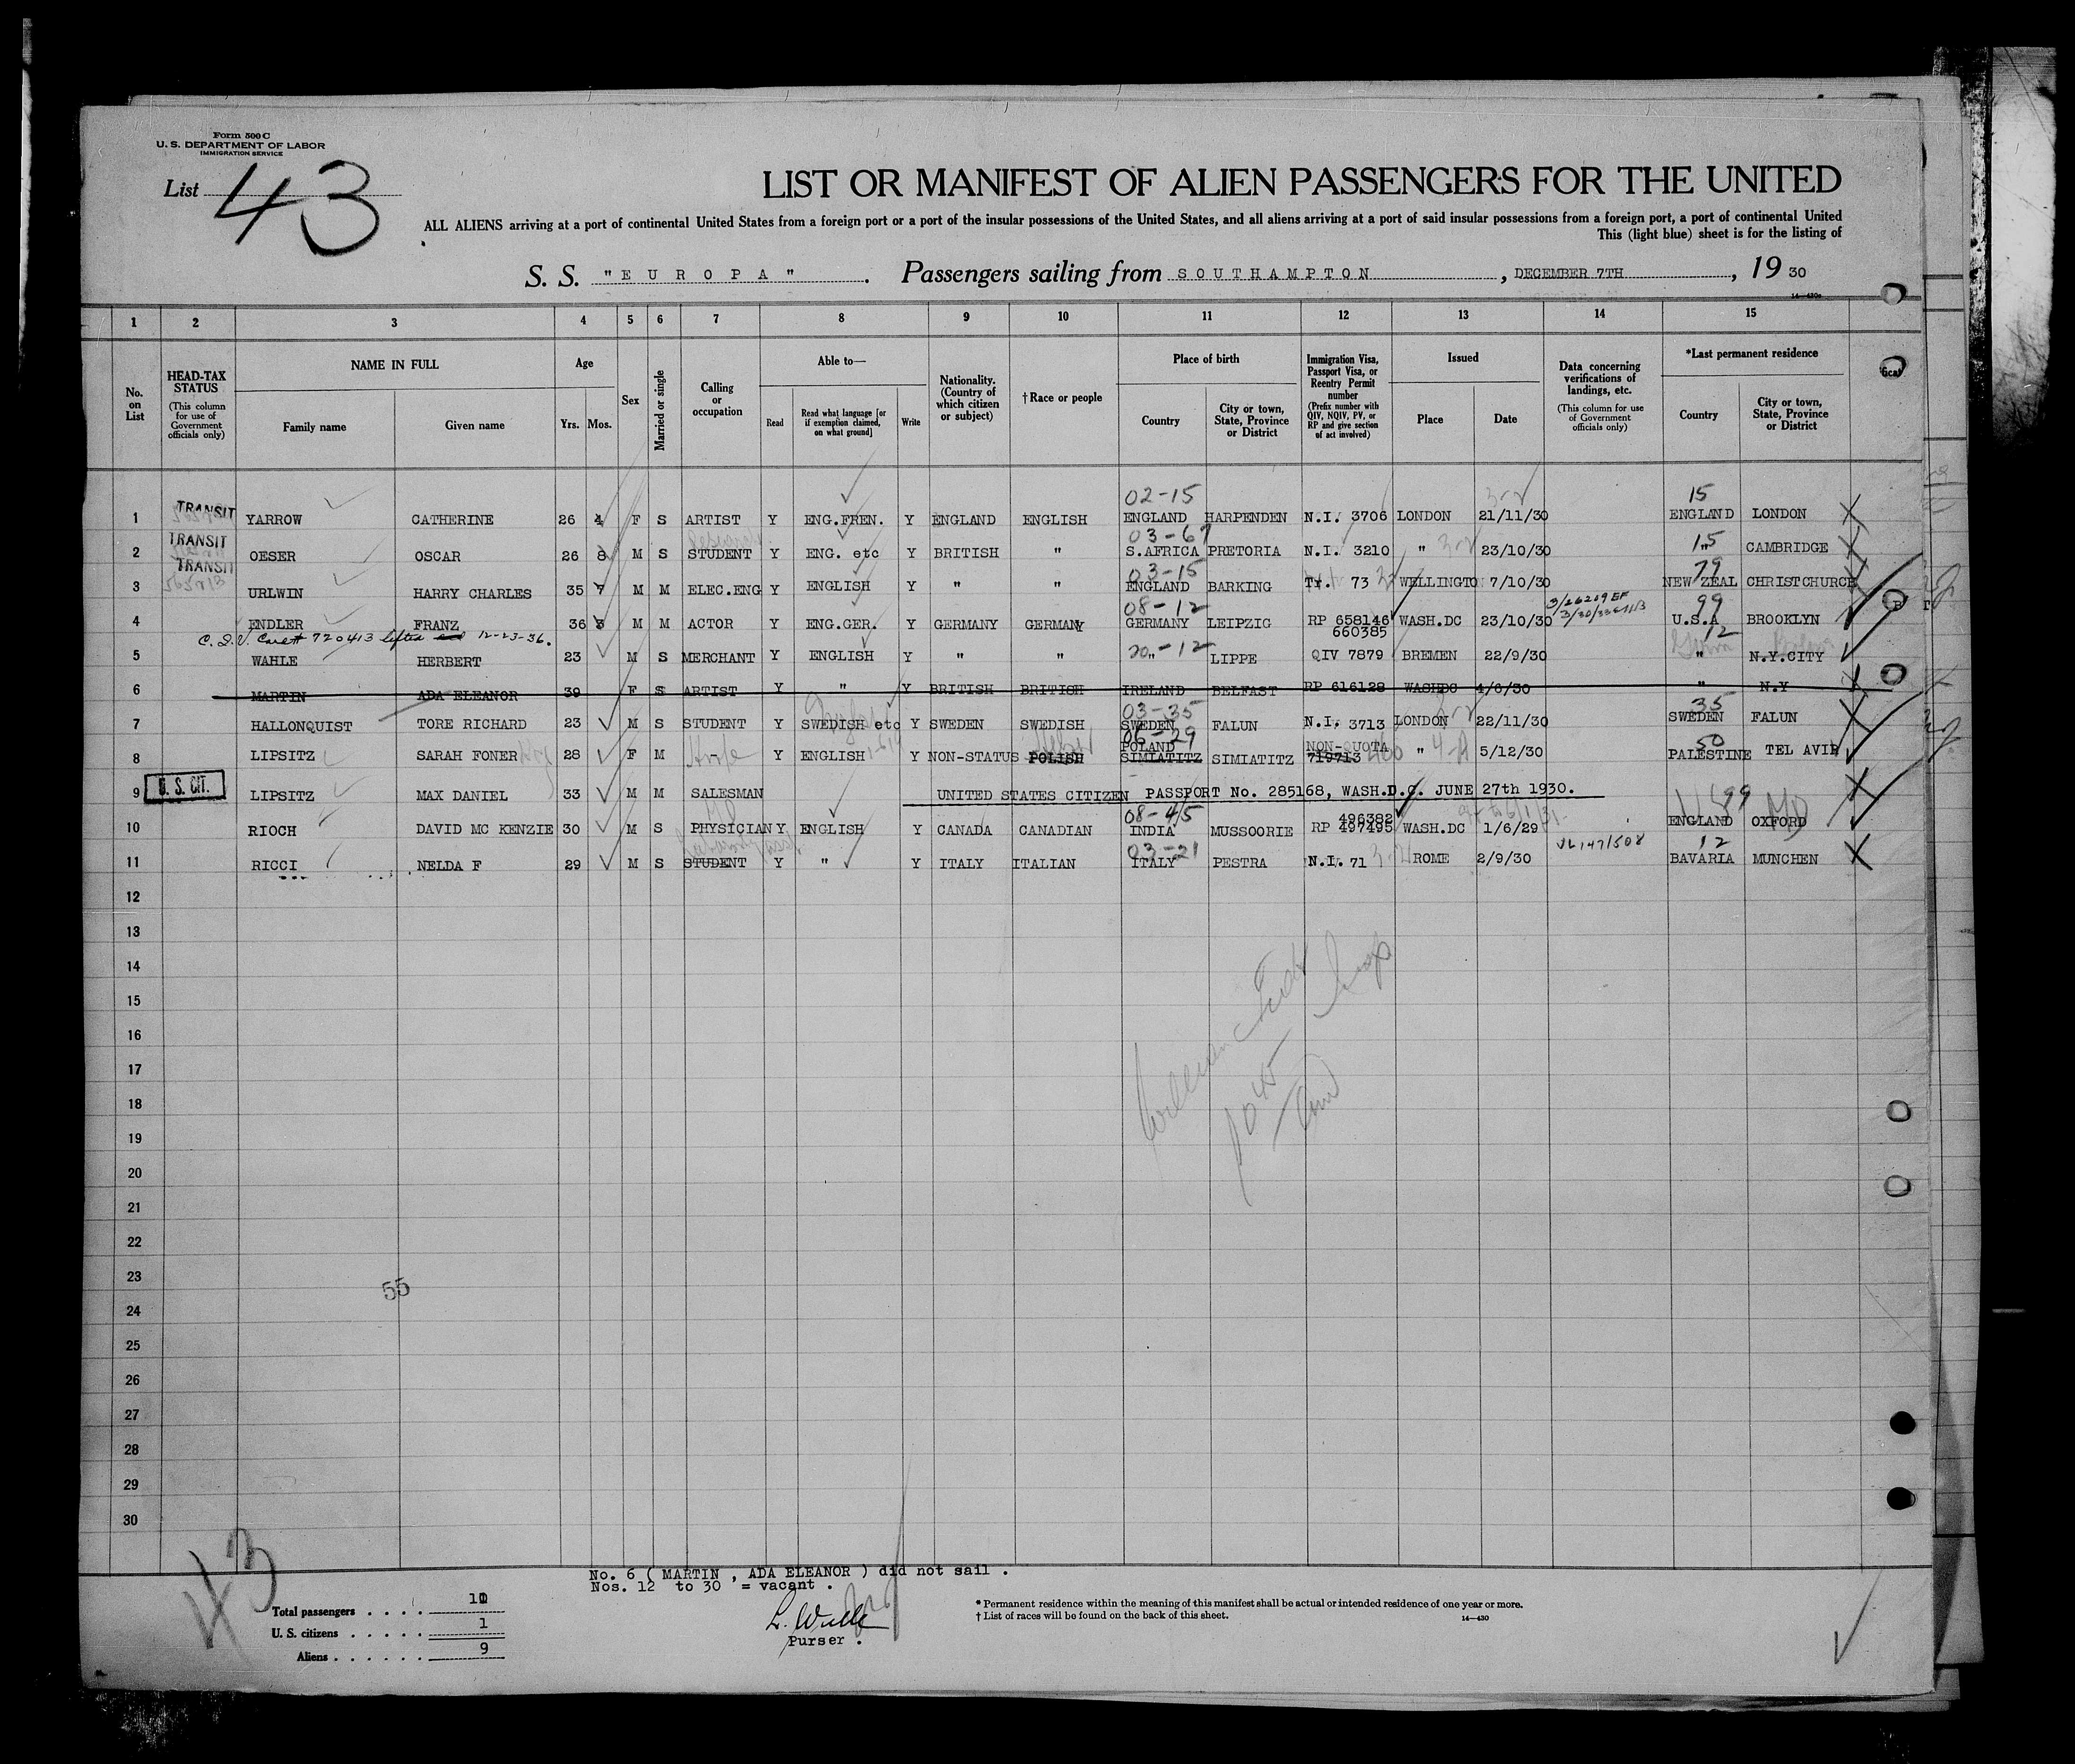 Form 500 C
U. S. DEPARTMENT OF LABOR
IMMIGRATION SERVICE
List 43
LIST OR MANIFEST OF ALIEN PASSENGERS FOR THE UNITED
ALL ALIENS arriving at a port of continental United States from a foreign port or a port of the insular possessions of the United States, and all aliens arriving at a port of said insular possessions from a foreign port, a port of continental United
This (light blue) sheet is for the listing of
S. S. "EUROPA". Passengers sailing from SOUTHAMPTON, DECEMBER 7TH, 19 30
14—430c
1 2 3 4 5 6 7 8 9 10 11 12 13 14 15
No. on List
HEAD-TAX STATUS (This column for use of Government officials only)
NAME IN FULL Family name Given name
Age Yrs. Mos.
Sex
Married or single
Calling or occupation
Able to— Read Read what language [or if exemption claimed, on what ground] Write
Nationality. (Country of which citizen or subject)
†Race or people
Place of birth Country City or town, State, Province or District
Immigration Visa, Passport Visa, or Reentry Permit number (Prefix number with QIV, NQIV, PV, or RP and give section of act involved)
Issued Place Date
Data concerning verifications of landings, etc. (This column for use of Government officials only)
*Last permanent residence Country City or town, State, Province or District
02-15 15
1 TRANSIT YARROW CATHERINE 26 4 F S ARTIST Y ENG.FREN. Y ENGLAND ENGLISH ENGLAND HARPENDEN N.I. 3706 LONDON 21/11/30 ENGLAND LONDON
03-67 15
2 TRANSIT OESER OSCAR 26 8 M S STUDENT Y ENG. etc Y BRITISH " S.AFRICA PRETORIA N.I. 3210 " 23/10/30 " CAMBRIDGE
03-15 79
3 TRANSIT URLWIN HARRY CHARLES 35 7 M M ELEC.ENG Y ENGLISH Y " " ENGLAND BARKING Tr. 73 WELLINGTO 7/10/30 NEW ZEAL CHRISTCHURCH
08-12 99
4 ENDLER FRANZ 36 3 M M ACTOR Y ENG.GER. Y GERMANY GERMANY GERMANY LEIPZIG RP 658146 660385 WASH.DC 23/10/30 U.S.A BROOKLYN
720413 lifted 12-23-36.
5 WAHLE HERBERT 23 M S MERCHANT Y ENGLISH Y " " " 20-12 LIPPE QIV 7879 BREMEN 22/9/30 12 " N.Y.CITY
6 MARTIN ADA ELEANOR 39 F S ARTIST Y " Y BRITISH BRITISH IRELAND BELFAST RP 616128 WASHDC 4/6/30 " N.Y
03-35 35
7 HALLONQUIST TORE RICHARD 23 M S STUDENT Y SWEDISH etc Y SWEDEN SWEDISH SWEDEN FALUN N.I. 3713 LONDON 22/11/30 SWEDEN FALUN
06-29 50
8 LIPSITZ SARAH FONER 28 F M Y ENGLISH Y NON-STATUS POLISH POLAND SIMIATITZ SIMIATITZ NON-QUOTA 719713 " 5/12/30 PALESTINE TEL AVIB
U. S. CIT.
9 LIPSITZ MAX DANIEL 33 M M SALESMAN UNITED STATES CITIZEN PASSPORT No. 285168, WASH.D.C. JUNE 27th 1930.
08-45 99
10 RIOCH DAVID MC KENZIE 30 M S PHYSICIAN Y ENGLISH Y CANADA CANADIAN INDIA MUSSOORIE RP 496382 497495 WASH.DC 1/6/29 ENGLAND OXFORD
03-21 12
11 RICCI NELDA F 29 M S STUDENT Y " Y ITALY ITALIAN ITALY PESTRA N.I. 71 ROME 2/9/30 BAVARIA MUNCHEN
12
13
14
15
16
17
18
19
20
21
22
23
55
24
25
26
27
28
29
30
43
No. 6 ( MARTIN , ADA ELEANOR ) did not sail .
Nos. 12 to 30 = vacant .
Total passengers . . . . 10
U. S. citizens . . . . . 1
Aliens . . . . . . 9
Purser .
* Permanent residence within the meaning of this manifest shall be actual or intended residence of one year or more.
† List of races will be found on the back of this sheet. 14—430